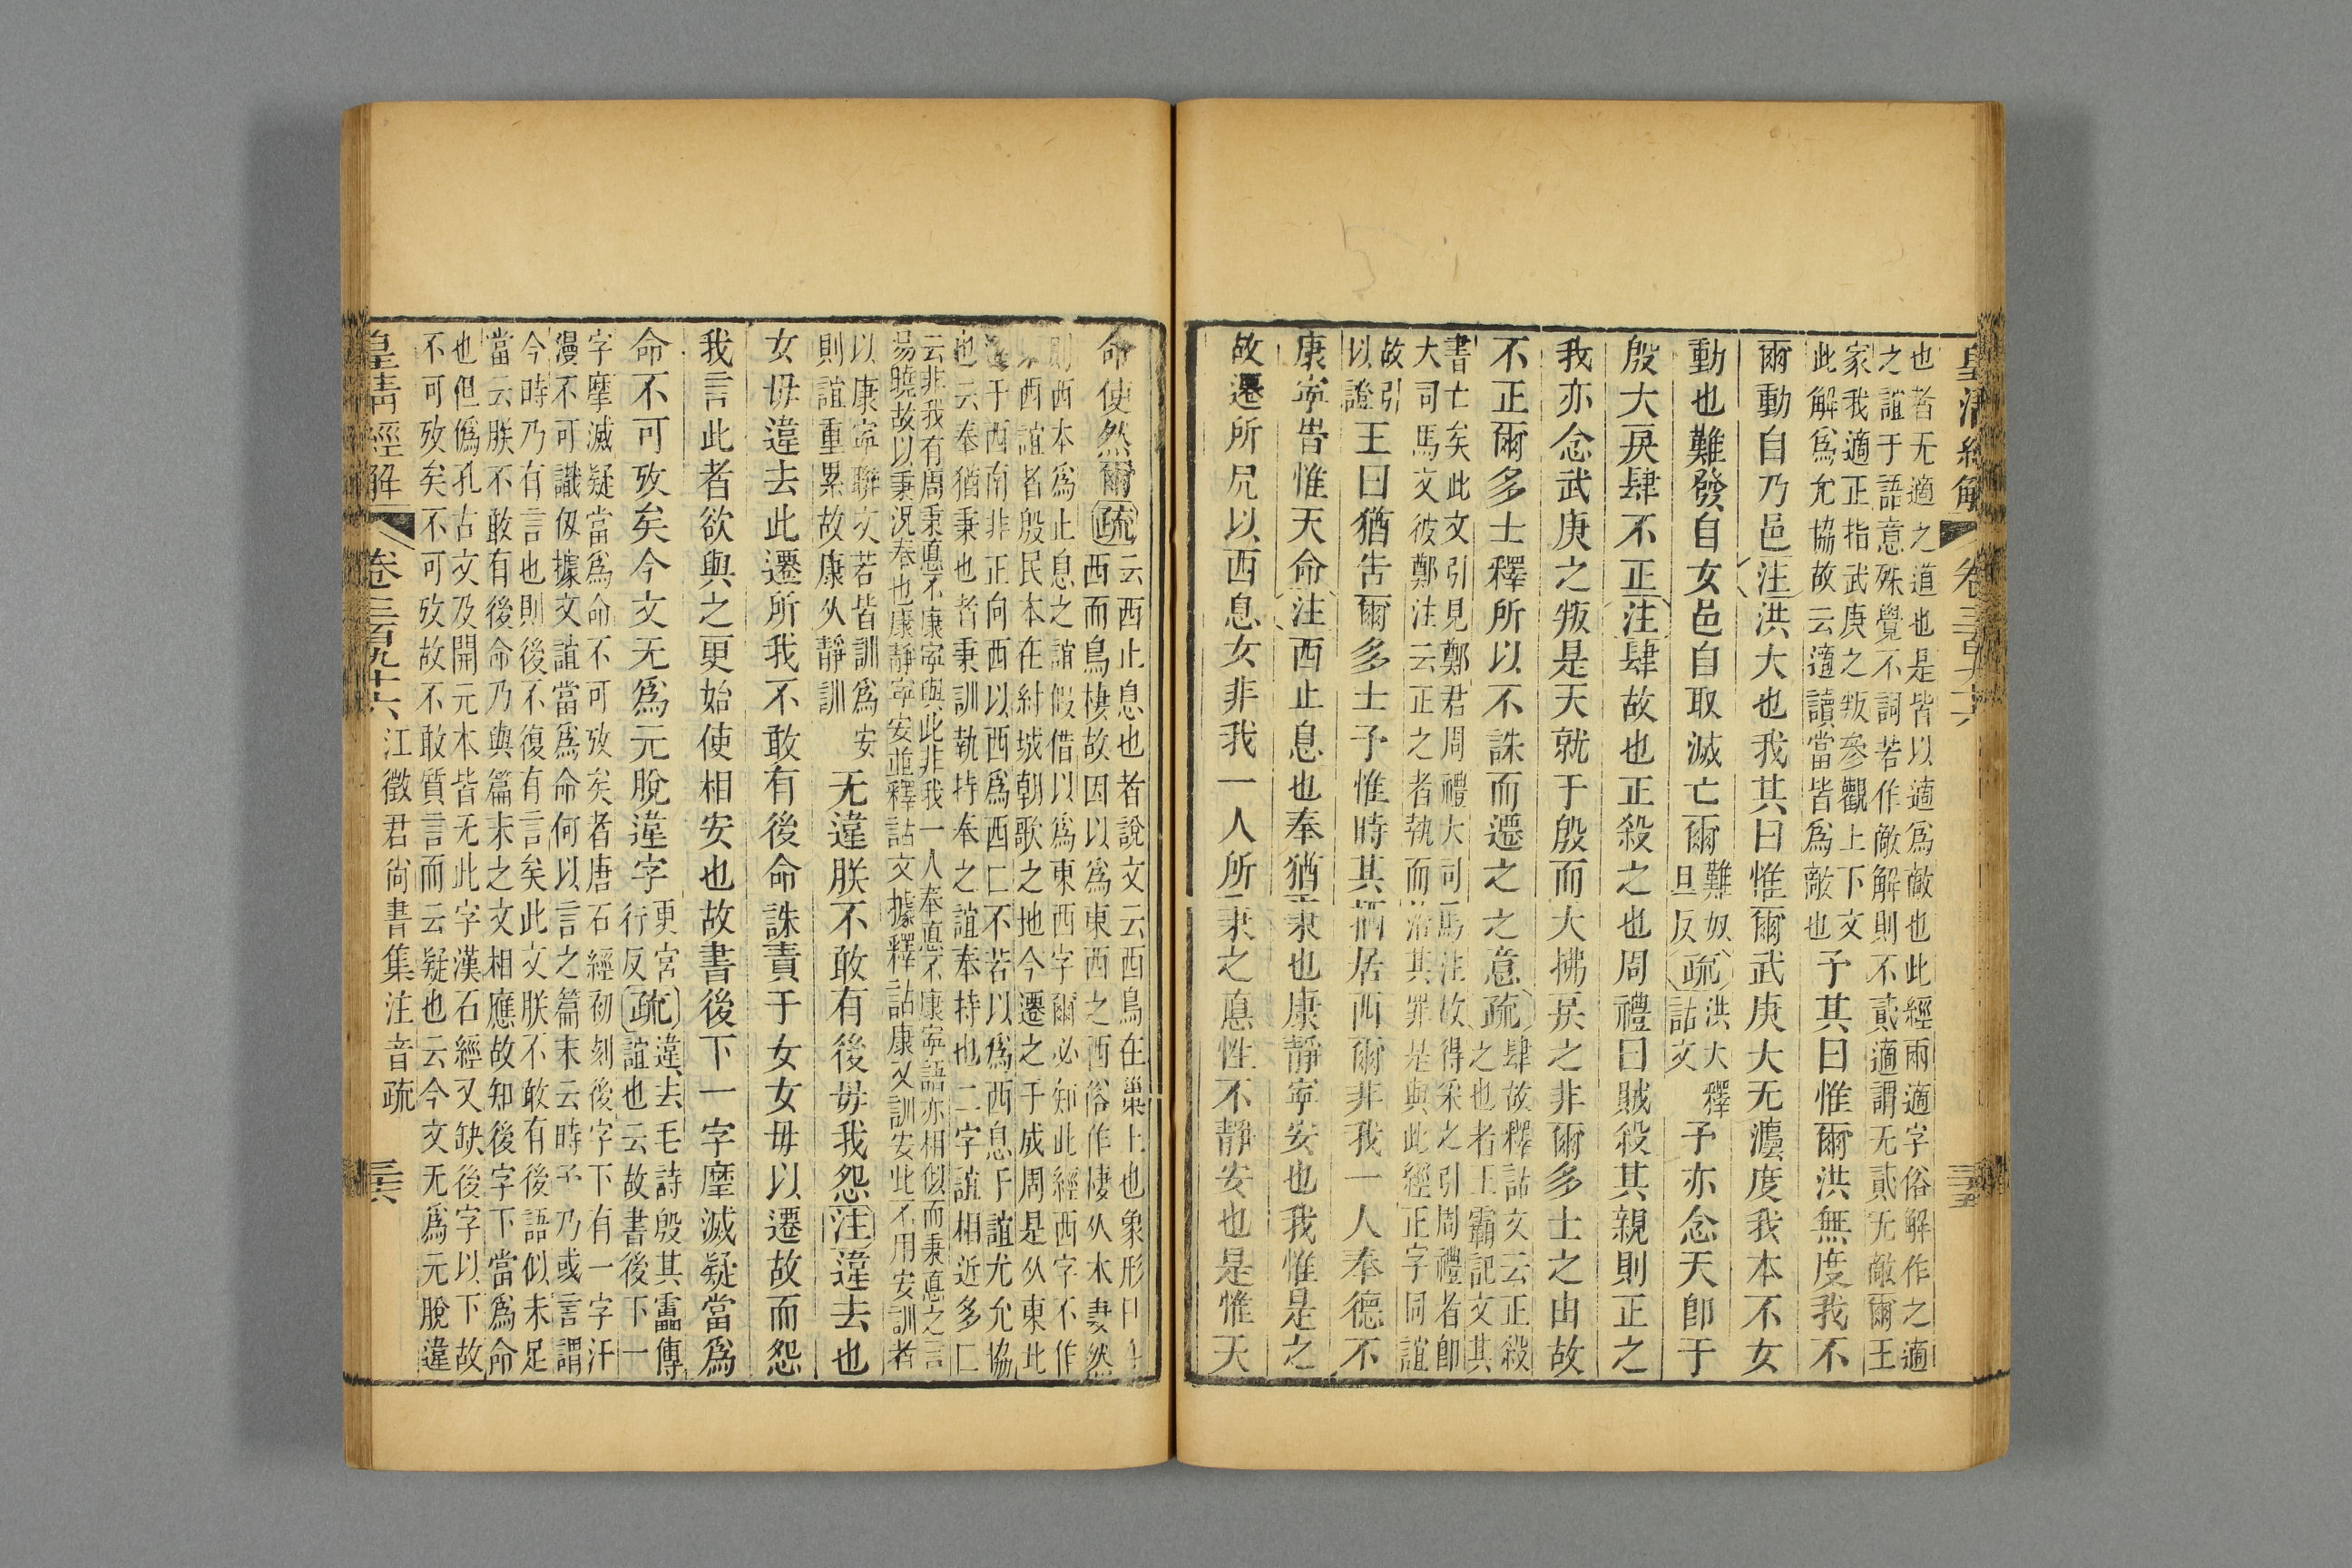 皇清經解 卷三百九十六 三五
也者无適之道也是皆以適爲敵也此經兩適字俗解作之適
之誼于語意殊覺不詞若作敵解則不貳適謂无貳无敵爾王
家我適正指武庚之叛參觀上下文
此解爲允協故云適讀當皆爲敵也
予其曰惟爾洪無度我不
爾動自乃邑注洪大也我其曰惟爾武庚大无灋度我本不女
動也難發自女邑自取滅亡爾
難奴
旦反
疏
洪大釋
詁文
予亦念天卽于
殷大戾肆不正注肆故也正殺之也周禮曰賊殺其親則正之
我亦念武庚之叛是天就于殷而大拂戾之非爾多士之由故
不正爾多士釋所以不誅而遷之之意疏
肆故釋詁文云正殺
之也者王霸記文其
書亡矣此文引見鄭君周禮大司馬注故得采之引周禮者卽
大司馬文彼鄭注云正之者執而治其罪是與此經正字同誼
故引
以證
王曰猶告爾多士予惟時其栖居西爾非我一人奉德不
康寧告惟天命注西止息也奉猶秉也康靜寧安也我惟是之
故遷所凥以西息女非我一人所秉之悳性不靜安也是惟天
命使然爾疏
云西止息也者說文云西鳥在巢上也象形日在
西而鳥棲故因以爲東西之西俗作棲从木妻然
則西本爲止息之誼假借以爲東西字爾必知此經西字不作
東西誼者殷民本在紂城朝歌之地今遷之于成周是从東北
遷于西南非正向西以西爲西匚不若以爲西息于誼尤允協
也云奉猶秉也者秉訓執持奉之誼奉持也二字誼相近多匚
云非我有周秉悳不康寧與此非我一人奉悳不康寧語亦相似而秉悳之言
易曉故以秉況奉也康靜寧安並釋詁文據釋詁康又訓安此不用安訓者
以康寧聯文若皆訓爲安
則誼重累故康从靜訓
无違朕不敢有後毋我怨注違去也
女毋違去此遷所我不敢有後命誅責于女女毋以遷故而怨
我言此者欲與之更始使相安也故書後下一字摩滅疑當爲
命不可攷矣今文无爲元脫違字
更宮
行反
疏
違去毛詩殷其靁傳
誼也云故書後下一
字摩滅疑當爲命不可攷矣者唐石經初刻後字下有一字汗
漫不可識伋據文誼當爲命何以言之篇末云時予乃或言謂
今時乃有言也則後不復有言矣此文朕不敢有後語似未足
當云朕不敢有後命乃與篇末之文相應故知後字下當爲命
也但僞孔古文及開元本皆无此字漢石經又缺後字以下故
不可攷矣不可攷故不敢質言而云疑也云今文无爲元脫違
皇清經解 卷三百九十六 江徵君尚書集注音疏 三六